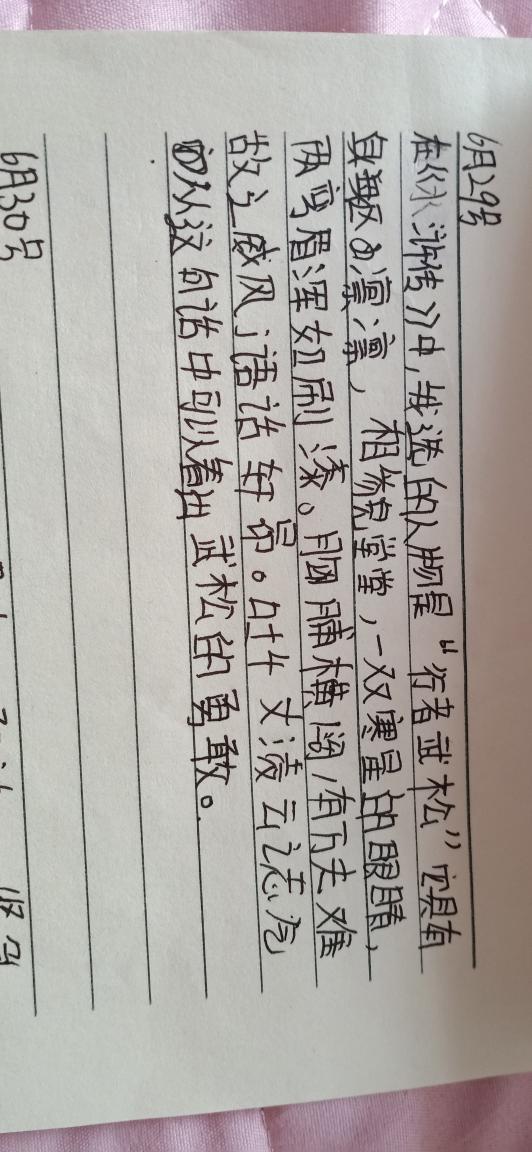 6月29号
在《水浒传》中,我选的人物是“行者武松”它具有
身躯凛凛,相貌堂堂,一双寒星的眼睛,
两弯眉浑如刷漆。胸脯横阔,有万夫难
敌之威风;语话轩昂。吐千丈凌云之志气
从这句话中可以看出武松的勇敢。
6月30号